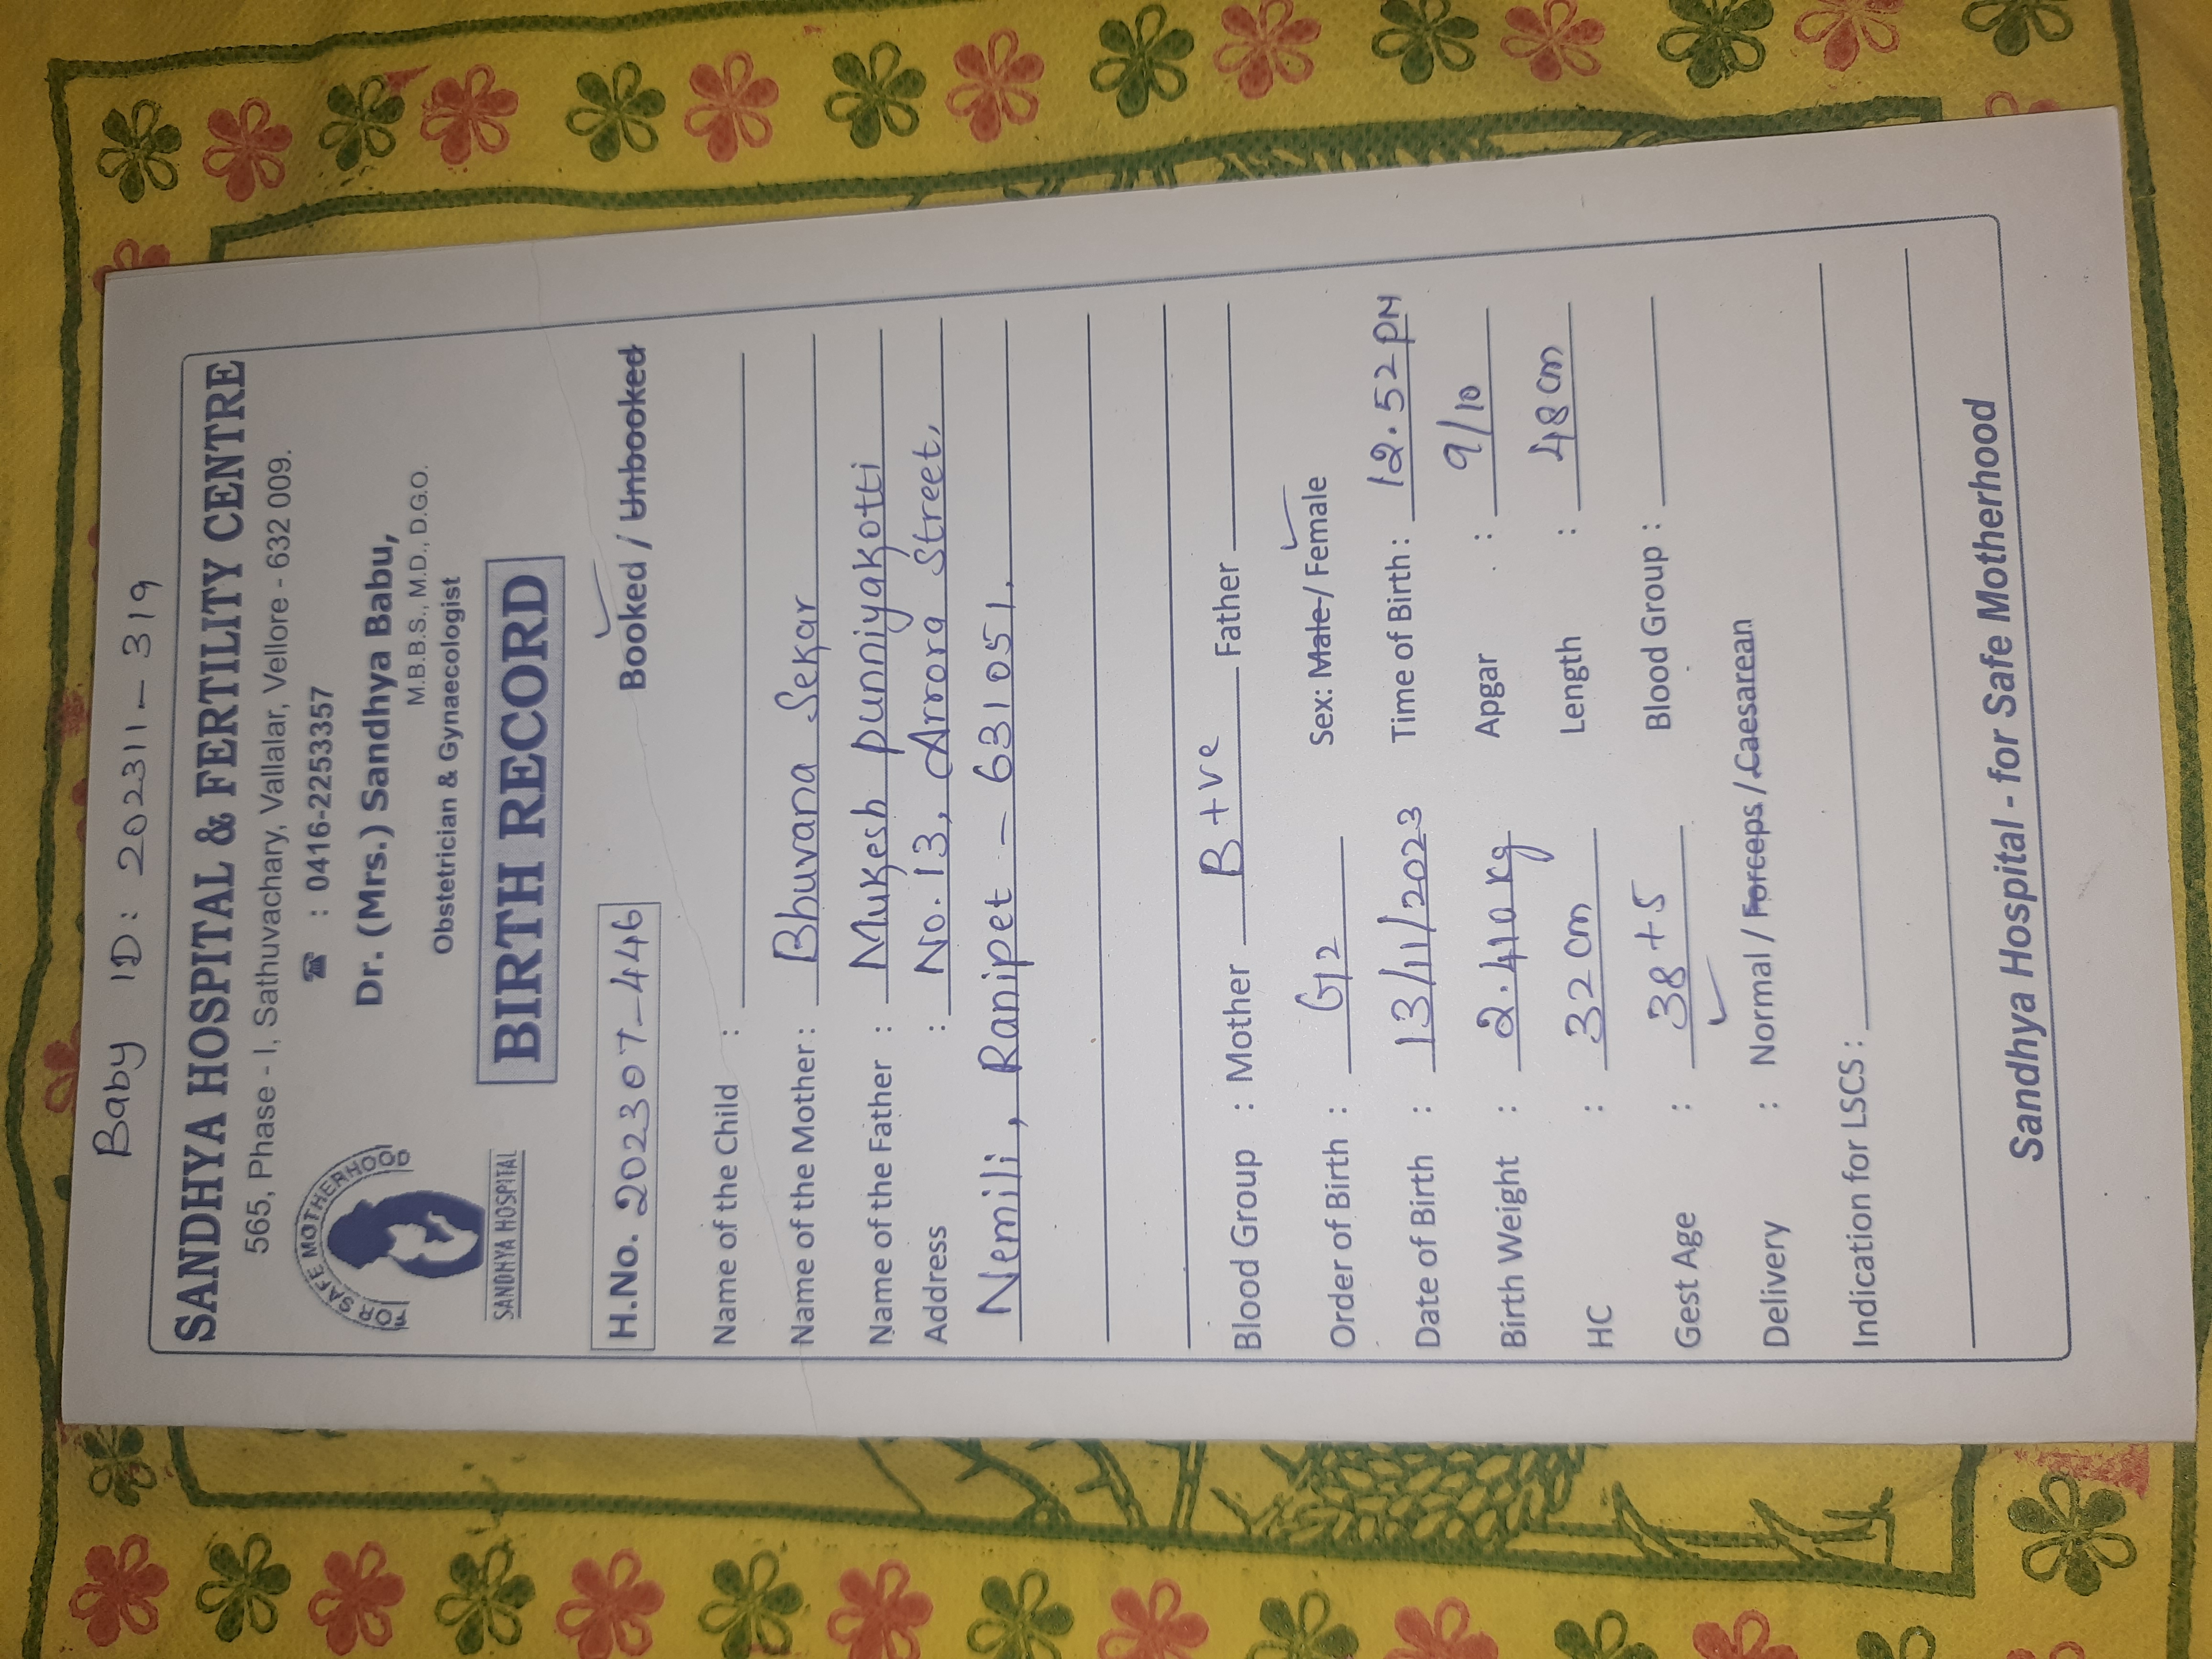 Baby ID: 202311-319
SANDHYA HOSPITAL & FERTILITY CENTRE
565, Phase - I, Sathuvachary, Vallalar, Vellore - 632 009.
☎ : 0416-2253357
FOR SAFE MOTHERHOOD
SANDHYA HOSPITAL
Dr. (Mrs.) Sandhya Babu,
M.B.B.S., M.D., D.G.O.
Obstetrician & Gynaecologist
BIRTH RECORD
H.No. 202307-446 Booked / Unbooked
Name of the Child :
Name of the Mother : Bhuvana Sekar
Name of the Father : Mukesh Punniyakotti
Address : No. 13, Arrora Street,
Nemili, Ranipet - 631051.
Blood Group : Mother B +ve Father
Order of Birth : G2 Sex: Male / Female
Date of Birth : 13/11/2023 Time of Birth : 12.52 PM
Birth Weight : 2.410 kg Apgar : 9/10
HC : 32 cm Length : 48 cm
Gest Age : 38+5 Blood Group :
Delivery : Normal / Forceps / Caesarean
Indication for LSCS :
Sandhya Hospital - for Safe Motherhood